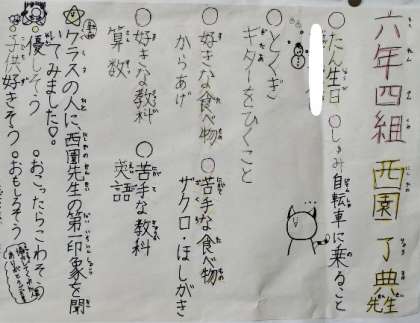 六年四組 西園 了典先生
○たん生日 ○しゅみ 自転車に乗ること
○とくぎ
ギターをひくこと
○好きな食べ物 ○苦手な食べ物
からあげ ザクロ・ほしがき
○好きな教科 ○苦手な教科
算数 英語
☆クラスの人に、西園先生の第一印象を聞
いてみました♡。
○優しそう ○おこったらこわそう
○子供好きそう ○おもしろそう